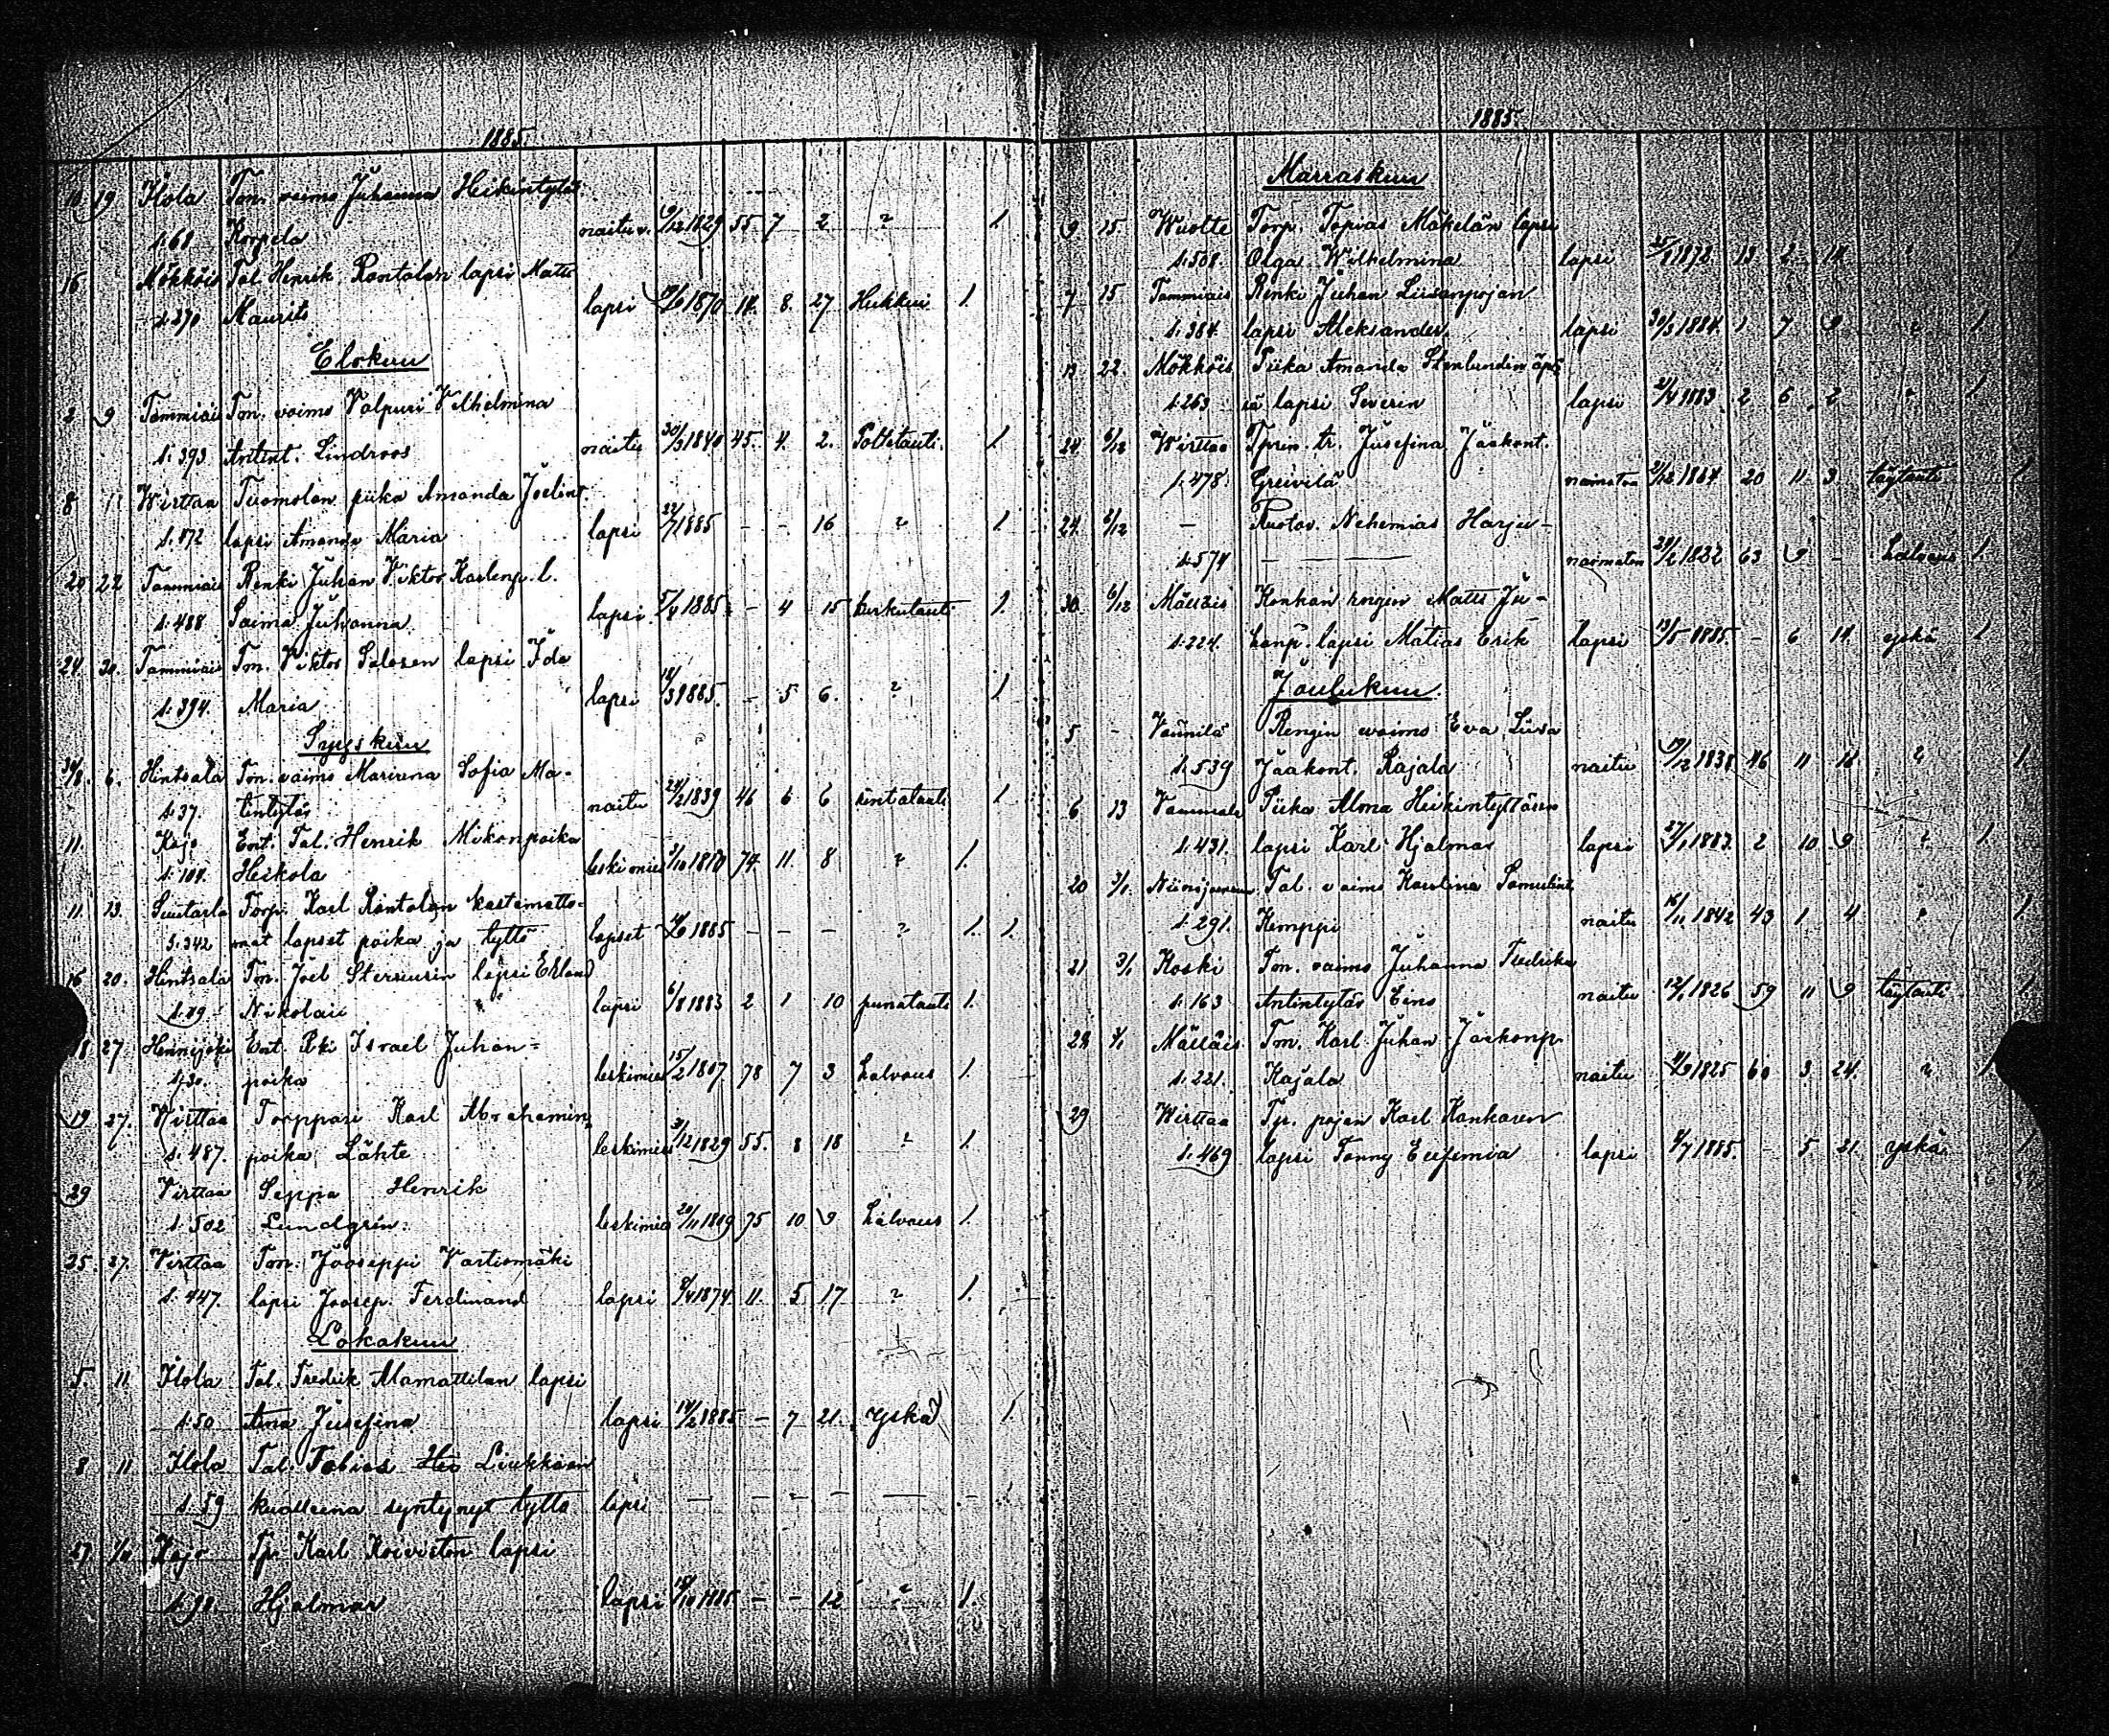 1885.
10 19 Ilola Ton. vaimo Juhanna Heikintytär
s. 68 Korpela naitu v. 9/12 1829 55 7 2 ? 1.
16 Mökköis Tal. Henrik Rantalan lapsi Matts
s. 370 Maurits lapsi 1870 14. 8. 27 Hukkui 1.
Elokuu
2 9 Tammiais Ton. vaimo Valpuri Vilhelmina
s. 393 Antint. Lindroos naitu 30/3 1840 45. 4. 2. Polttotauti 1
8 11 Wirttaa Tuomolan piika Amanda Joelint.
s. 472 lapsi Amanda Maria lapsi 22/7 1885 - - 16 ? 1
20 22 Tammiais Renki Juhan Viktor Karlenp. l.
s. 488 Saima Juhanna lapsi 5/4 1885. - 4 15 1.
24 30. Tammiais Ton. Viktor Salosen lapsi Ida
s. 394. Maria lapsi 18/3 1885. - 5 6. ? 1
Syyskuu
30/8. 6. Hintsala Ton. vaimo Mariana Sofia Ma-
s. 37. tintytär naitu 24/2 1839 46 6 6 rintatauti 1
11. Kojo Ent. Tal. Henrik Mikonpoika
s. 104. Heikola leskimies 3/10 1810 74. 11. 8 ? 1.
11. 13. Suutarla Torp. Karl Rantalan kastamatto-
s. 342 mat lapset poika ja tyttö lapset 1885 - - - ? 1. 1.
16 20. Hintsala Ton. Joel Sterniusin lapsi Erland
s. 29 Nikolai lapsi 6/8 1883 2 1 10 punatauti 1.
18 27 Hennijoki Ent. Rki Israel Juhan=
s. 30. poika leskimies 15/2 1807 78 7 3 halvaus 1.
19 27. Virttaa Torppari Karl Abrahamin
s. 487. poika Lähte leskimies 31/12 1829 55. 8 18 ? 1.
29 Virttaa Seppä Henrik
s. 502 Lundgrén. leskimies 20/11 1809 75 10 9 halvaus 1.
25. 27. Virttaa Ton. Jooseppi Vartiomäki
s. 447. lapsi Joosep. Ferdinand lapsi 8/4 1874 11. 5 17 ? 1.
Lokakuu
5. 11 Ilola Tal. Fredrik Mamattilan lapsi
s. 50 Alma Jusefina lapsi 14/2 1885 - 7 21. Yskä 1.
8 11 Ilola Tal. Tobias Liukkosen
s. 59 kuolleena syntynyt tyttö lapsi - - - - - -
27 1/11 Kojo Tp. Karl Koiviston lapsi
s. 98. Hjalmar lapsi 15/10 1885. - - 12 ? 1.
1885.
Marraskuu
9 15. Wuolte Torp. Topias Mäkelän lapsi
s. 508. Olga Wilhelmina lapsi 25/8 1872 13 2 14 ? 1
7 15 Tammiais Renki Juhan Liisanpojan
s. 384. lapsi Aleksander lapsi 30/3 1884. 1 7 9 ? 1.
13 22. Mökköis Piika Amanda Stenlundin äpä
s. 263 rä lapsi Severin lapsi 1883. 2 6 2 ? 1.
24. 6/12 Wirttaa Tprin tr. Jusefina Jaakont.
s. 478. Greivilä naimaton 21/12 1864 20 11 3 täytauti 1
24. 6/12 - Ruotov. Nehemias Harju-
s. 574 - naimaton 24/2 1822 63 9 - halvaus 1.
30. 6/12 Mälläis Konkan rengin Matts Ju-
s. 224. hanp. lapsi Matias Erik lapsi 13/5 1885. - 6 14 yskä 1
Joulukuu
5 - Vännilä Rengin vaimo Eva Liisa
s. 539 Jaakont. Rajala naitu 19/12 1838 46 11 16 ? 1.
6 13 Vammala Piika Alma Heikintyttären
s. 431. lapsi Karl Hjalmar lapsi 27/1 1883. 2 10 9 ? 1.
20 3/1. Niinijoensuu Tal. vaimo Karolina Samulint.
s. 291. Kemppi naitu 16/11 1842 43 1 4 ? 1.
21 3/1 Koski Ton. vaimo Juhanna Fredrika
s. 163 Antintytär Eino naitu 12/1 1826 59 11 9 täytauti 1.
28. Mälläis Tm. Karl Juhan Jaakonp.
s. 221. Kajala naitu 4/9 1825 60 3 24. ? 1
29 Wirttaa Tp. pojan Karl Kankaren
s. 469 lapsi Fanny Eufemia lapsi 8/7 1885. - 5 21. yskä 1